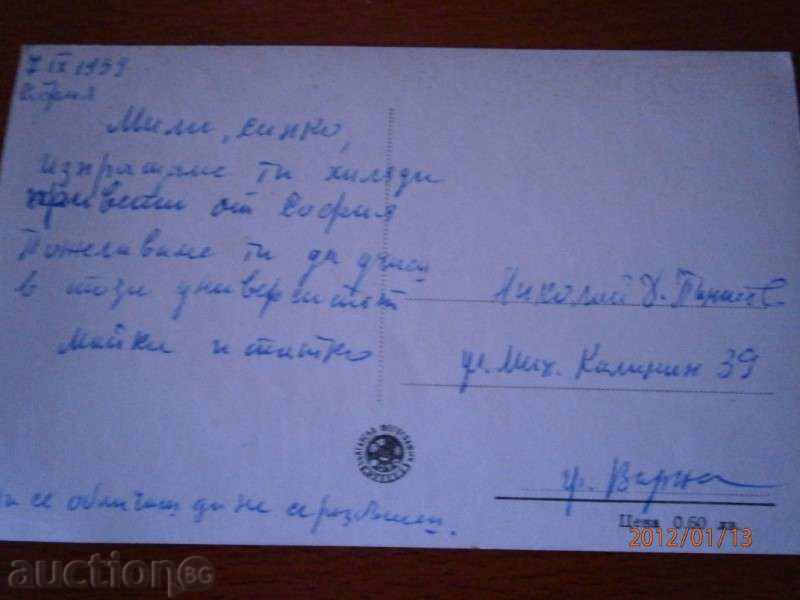 7 IX 1959
София
Мили, синко,
изпращаме ти хиляди
привети от София
Пожелаваме ти да учиш
в този университет
Майка и татко
Да се обличаш да не се разболееш.
Николай Д.
ул. Мих. Калинин 39
гр. Варна
Цена 0.60 лв.
2012/01/13
auction BG